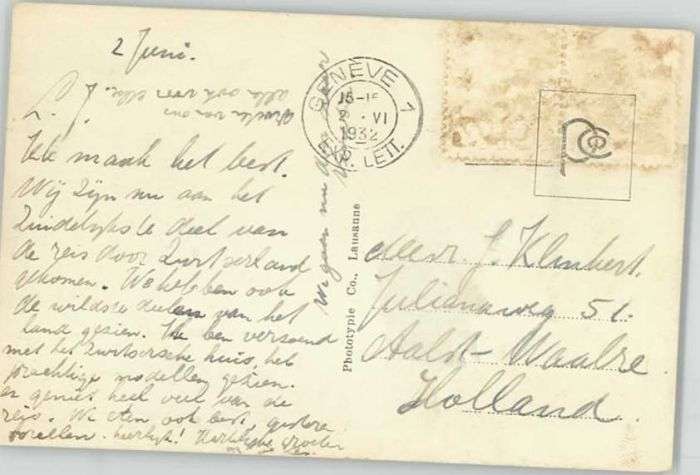 2 Juni.
L. J.
allen ook van elke.
van ons
Ik maak het best.
Wij zijn nu aan het
Zuidelijkste deel van
de reis door Zwitserland
gekomen. We hebben ook
de wildste deelen van het
land gezien. Ik ben verzoend
met het Zwitsersche huis, het
prachtige modellen gezien.
er geniet heel veel van de
reis. We eten ook best, gistere
forellen. heerlijk! Hartelijke groeten
We gaan nu
GENÈVE 1
15-
2. VI
1932
EXP. LETT.
Phototypie Co., Lausanne
Mevr. J. Klinkert.
Julianaweg 51.
Aalst-Waalre.
Holland.